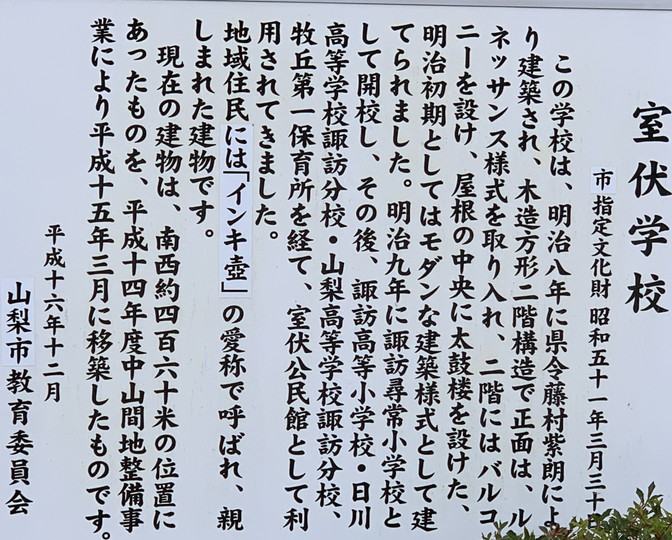 室伏学校
市指定文化財 昭和五十一年三月三十日
この学校は、明治八年に県令藤村紫朗によ
り建築され、木造方形二階構造で正面は、ル
ネッサンス様式を取り入れ、二階にはバルコ
ニーを設け、屋根の中央に太鼓楼を設けた、
明治初期としてはモダンな建築様式として建
てられました。明治九年に諏訪尋常小学校と
して開校し、その後、諏訪高等小学校・日川
高等学校諏訪分校・山梨高等学校諏訪分校、
牧丘第一保育所を経て、室伏公民館として利
用されてきました。
地域住民には「インキ壺」の愛称で呼ばれ、親
しまれた建物です。
現在の建物は、南西約四百六十米の位置に
あったものを、平成十四年度中山間地整備事
業により平成十五年三月に移築したものです。
平成十六年十二月
山梨市教育委員会